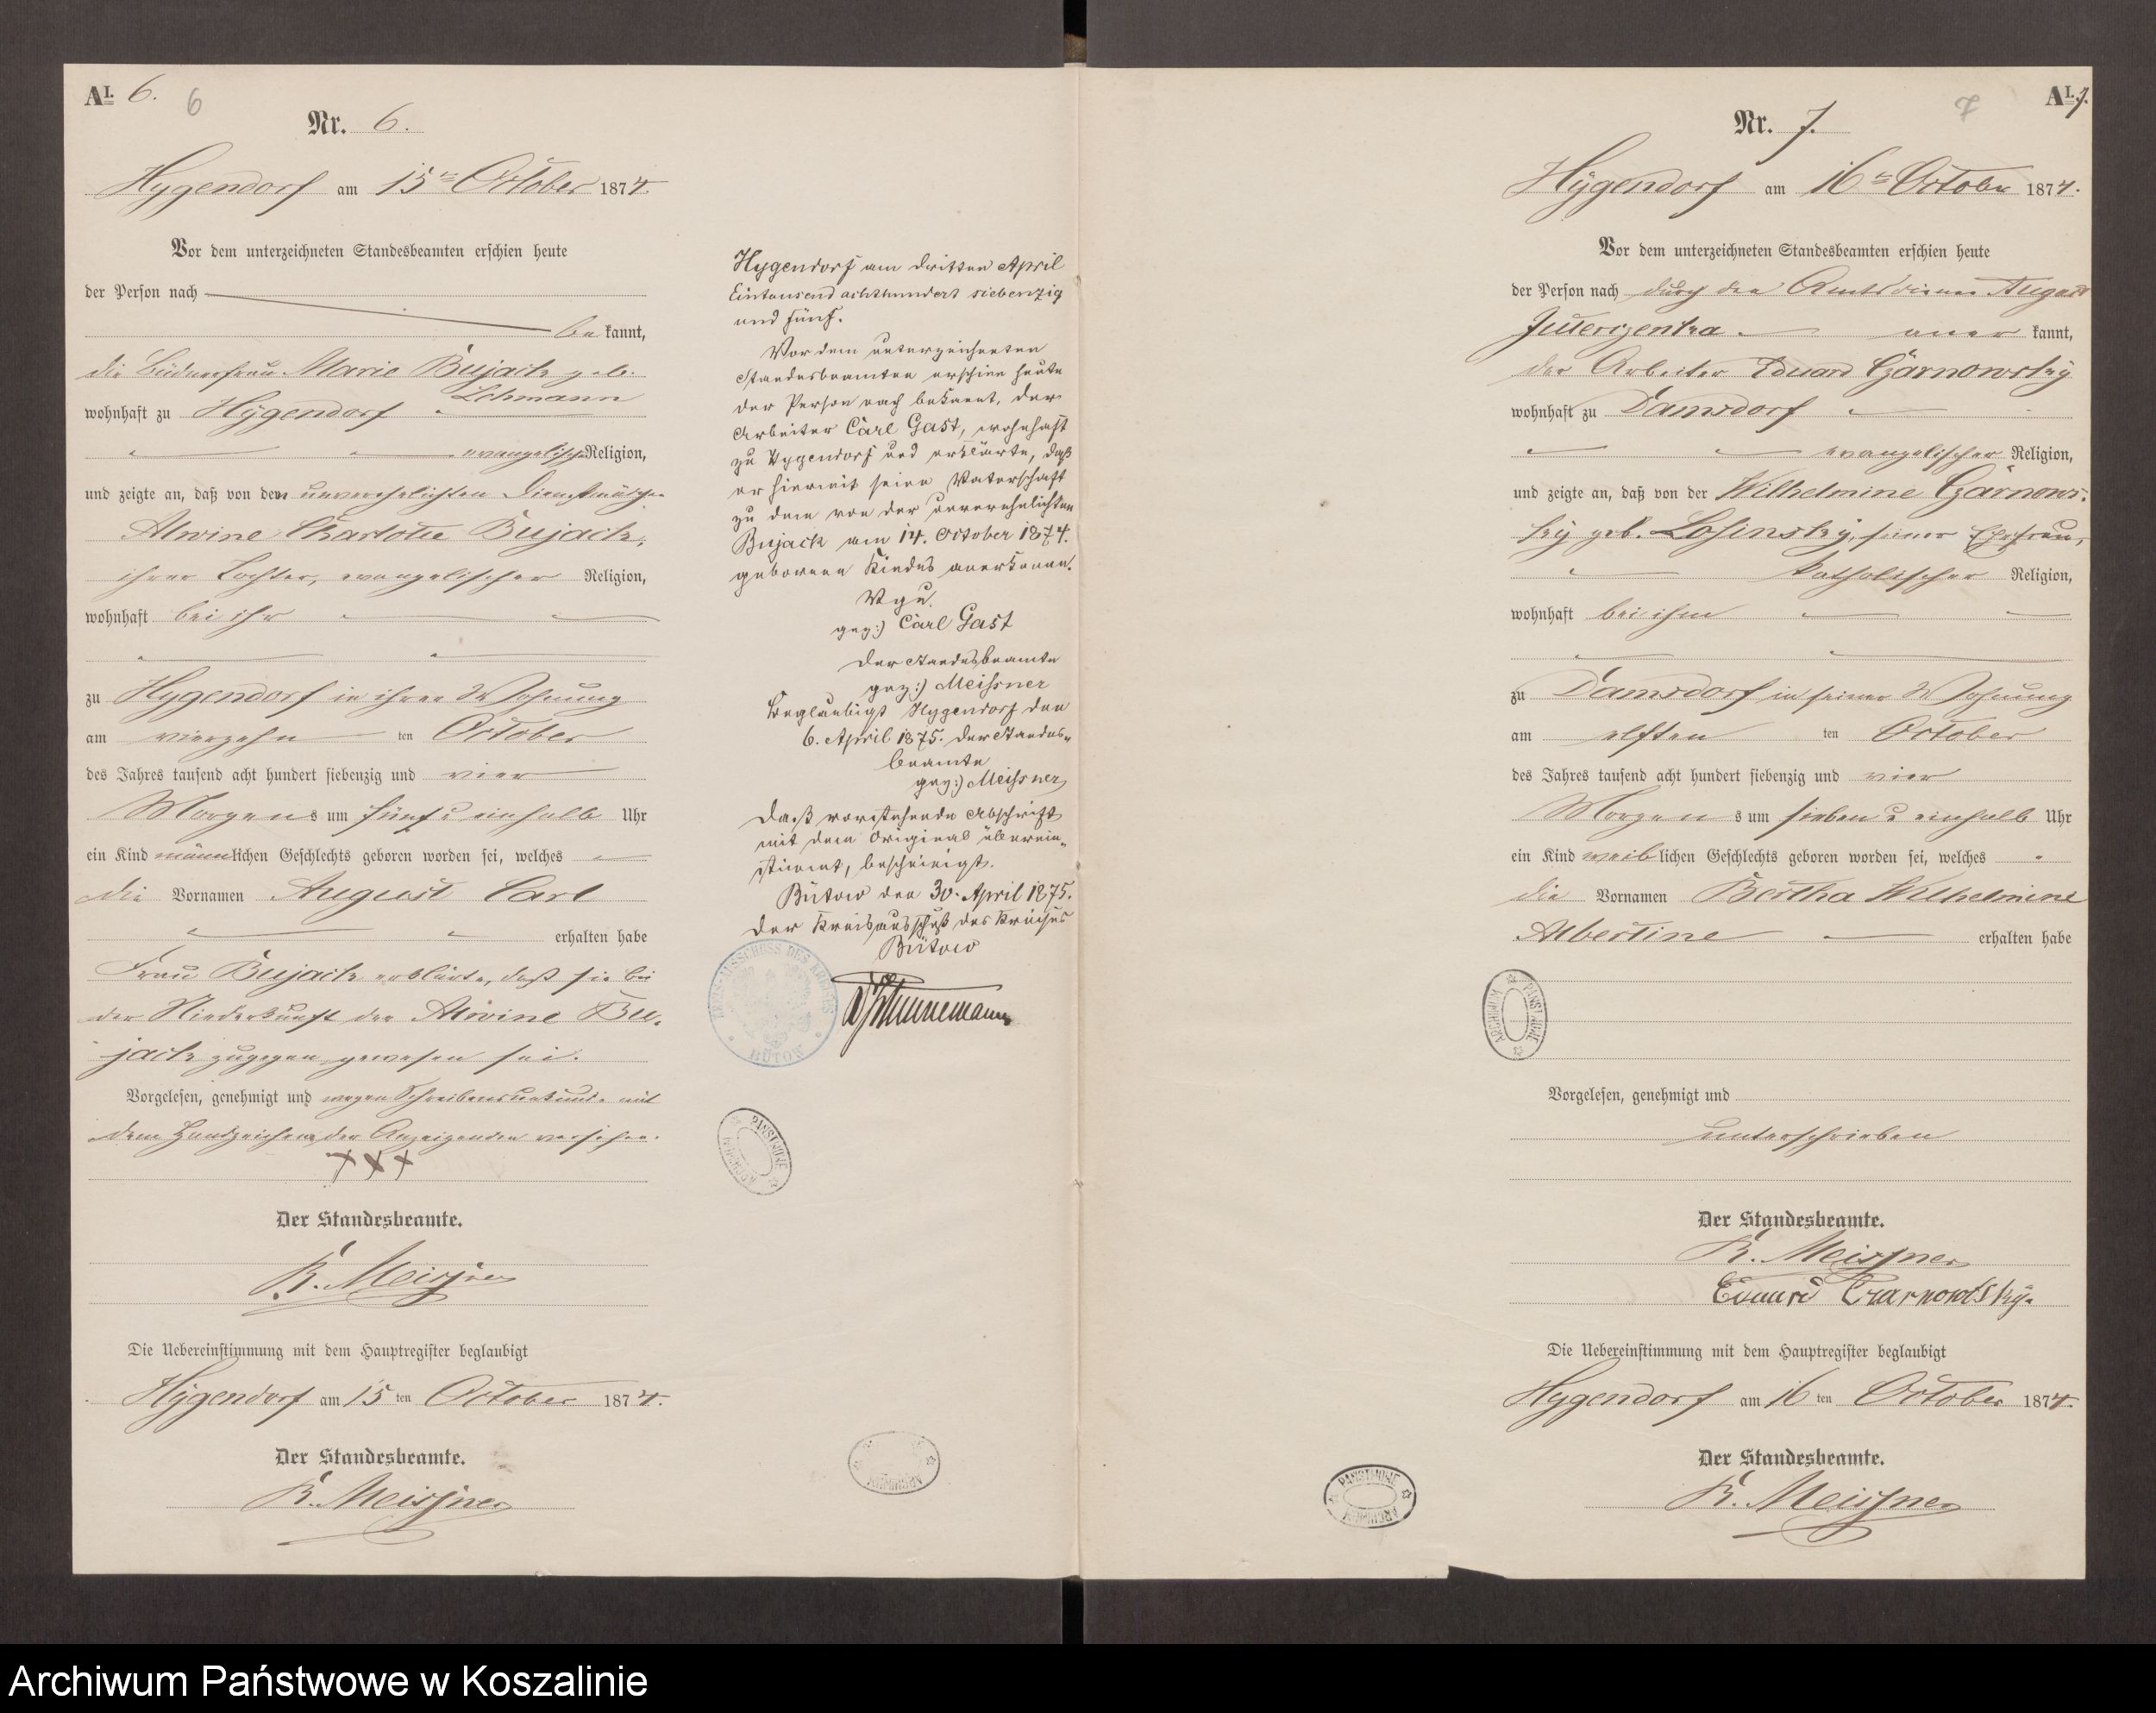 AI. 6.
6
Nr. 6.
Hygendorf am 15ten October 1874.
Vor dem unterzeichneten Standesbeamten erschien heute
der Person nach
bekannt,
die Büdnerfrau Marie Bujack geb.
Lehmann
wohnhaft zu Hygendorf
evangelischer Religion,
und zeigte an, daß von der unverehelichten Dienstmädchen
Alwine Charlotte Bujack,
ihrer Tochter, evangelischer Religion,
wohnhaft bei ihr
zu Hygendorf in ihrer Wohnung
am vierzehn ten October
des Jahres tausend acht hundert siebenzig und vier
Morgens um fünf u einhalb Uhr
ein Kind männlichen Geschlechts geboren worden sei, welches
die Vornamen August Carl
erhalten habe
Frau Bujack erklärte, daß sie bei
der Niederkunft der Alwine Bu-
jack zugegen gewesen sei.
Vorgelesen, genehmigt und wegen Schreibensunkunde mit
dem Handzeichen der Anzeigenden versehen.
+ + +
Der Standesbeamte.
R. Meissner
Die Uebereinstimmung mit dem Hauptregister beglaubigt
Hygendorf am 15 ten October 1874.
Der Standesbeamte.
R. Meissner
Hygendorf am dritten April
Eintausend achthundert siebenzig
und fünf.
Vor dem unterzeichneten
Standesbeamten erschien heute
der Person nach bekannt, der
Arbeiter Carl Gast, wohnhaft
zu Hygendorf und erklärte, daß
er hiermit seine Vaterschaft
zu dem von der unverehelichten
Bujack am 14. October 1874.
geborenen Kindes anerkenne.
V. g. u.
gez:) Carl Gast
Der Standesbeamte
gez:) Meissner
Beglaubigt Hygendorf den
6. April 1875. Der Standes-
beamte
gez:) Meissner
Daß vorstehende Abschrift
mit dem Original überein-
stimmt, bescheinigt.
Bütow den 30. April 1875.
Der Kreisausschuß des Kreises
Bütow
KREIS-AUSSCHUSS DES KREISES
BÜTOW
ARCHIWUM PAŃSTWOWE
ARCHIWUM
AI. 7.
7
Nr. 7.
Hygendorf am 16ten October 1874.
Vor dem unterzeichneten Standesbeamten erschien heute
der Person nach durch den Amtsdiener August
anerkannt,
der Arbeiter Eduard Czarnowsky
wohnhaft zu Damsdorf
evangelischer Religion,
und zeigte an, daß von der Wilhelmine Czarnows-
ky geb. Losinsky, seiner Ehefrau,
katholischer Religion,
wohnhaft bei ihm
zu Damsdorf in seiner Wohnung
am elften ten October
des Jahres tausend acht hundert siebenzig und vier
Morgens um sieben u einhalb Uhr
ein Kind weiblichen Geschlechts geboren worden sei, welches
die Vornamen Bertha Wilhelmine
Albertine erhalten habe
ARCHIWUM PAŃSTWOWE
Vorgelesen, genehmigt und
unterschrieben
Der Standesbeamte.
R. Meissner
Eduard Czarnowsky.
Die Uebereinstimmung mit dem Hauptregister beglaubigt
Hygendorf am 16 ten October 1874.
Der Standesbeamte.
R. Meissner
PAŃSTWOWE ARCHIWUM
Archiwum Państwowe w Koszalinie